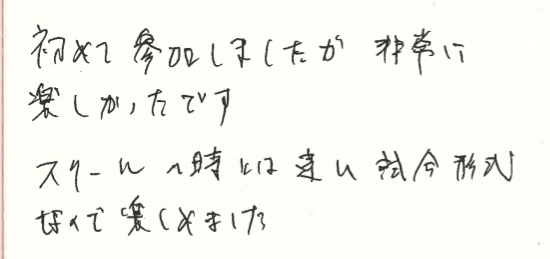 初めて参加しましたが 非常に
楽しかったです
スクールの時とは違い 試合形式
なので楽しめました